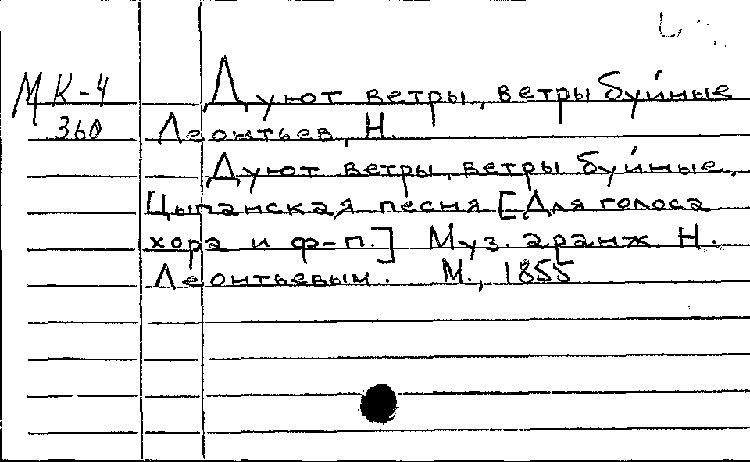 МК-4 Дуют ветры, ветры буйные
360 Леонтьев, Н.
Дуют ветры, ветры буйные.
Цыганская песня [Для голоса
хора и ф-п.] Муз. аранж. Н.
Леонтьевым. М., 1855